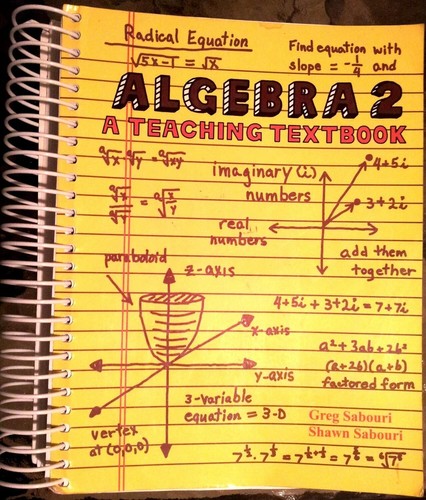 Radical Equation
√5x-1 = √x
Find equation with
slope = -1/4 and
ALGEBRA 2
A TEACHING TEXTBOOK
ⁿ√x ⁿ√y = ⁿ√xy
ⁿ√x/ⁿ√y = ⁿ√x/y
imaginary (i)
numbers
4+5i
3+2i
real
numbers
add them
together
paraboloid
z-axis
x-axis
y-axis
4+5i + 3+2i = 7+7i
a²+3ab+2b²
(a+2b)(a+b)
factored form
3-variable
equation = 3-D
vertex
at (0,0,0)
Greg Sabouri
Shawn Sabouri